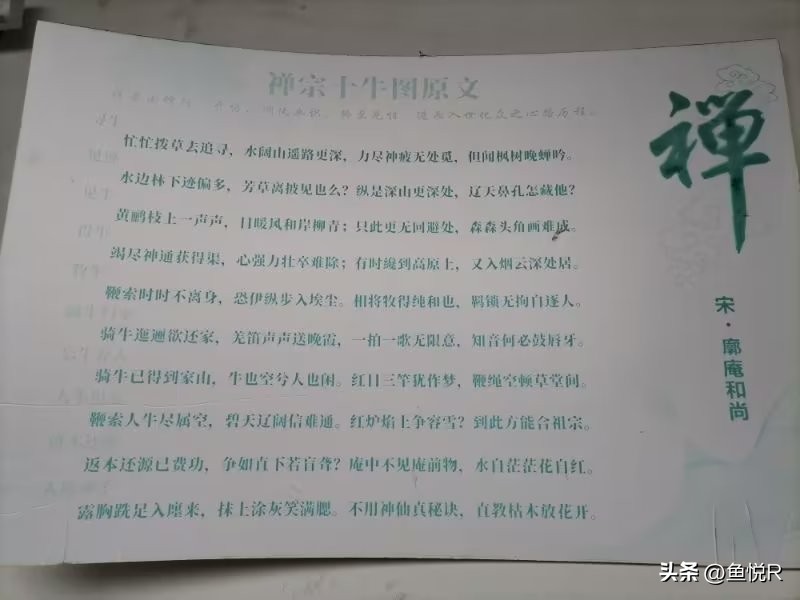 禅宗十牛图原文
忙忙拨草去追寻，水阔山遥路更深，力尽神疲无处觅，但闻枫树晚蝉吟。
水边林下迹偏多，芳草离披见也么？纵是深山更深处，辽天鼻孔怎藏他？
黄鹂枝上一声声，日暖风和岸柳青；只此更无回避处，森森头角画难成。
竭尽神通获得渠，心强力壮卒难除；有时才到高原上，又入烟云深处居。
鞭索时时不离身，恐伊纵步入埃尘。相将牧得纯和也，羁锁无拘自逐人。
骑牛迤逦欲还家，羌笛声声送晚霞，一拍一歌无限意，知音何必鼓唇牙。
骑牛已得到家山，牛也空兮人也闲。红日三竿犹作梦，鞭绳空顿草堂间。
鞭索人牛尽属空，碧天辽阔信难通。红炉焰上争容雪？到此方能合祖宗。
返本还源已费功，争如直下若盲聋？庵中不见庵前物，水自茫茫花自红。
露胸跣足入廛来，抹土涂灰笑满腮。不用神仙真秘诀，直教枯木放花开。
禅
宋·廓庵和尚
头条 @鱼悦R